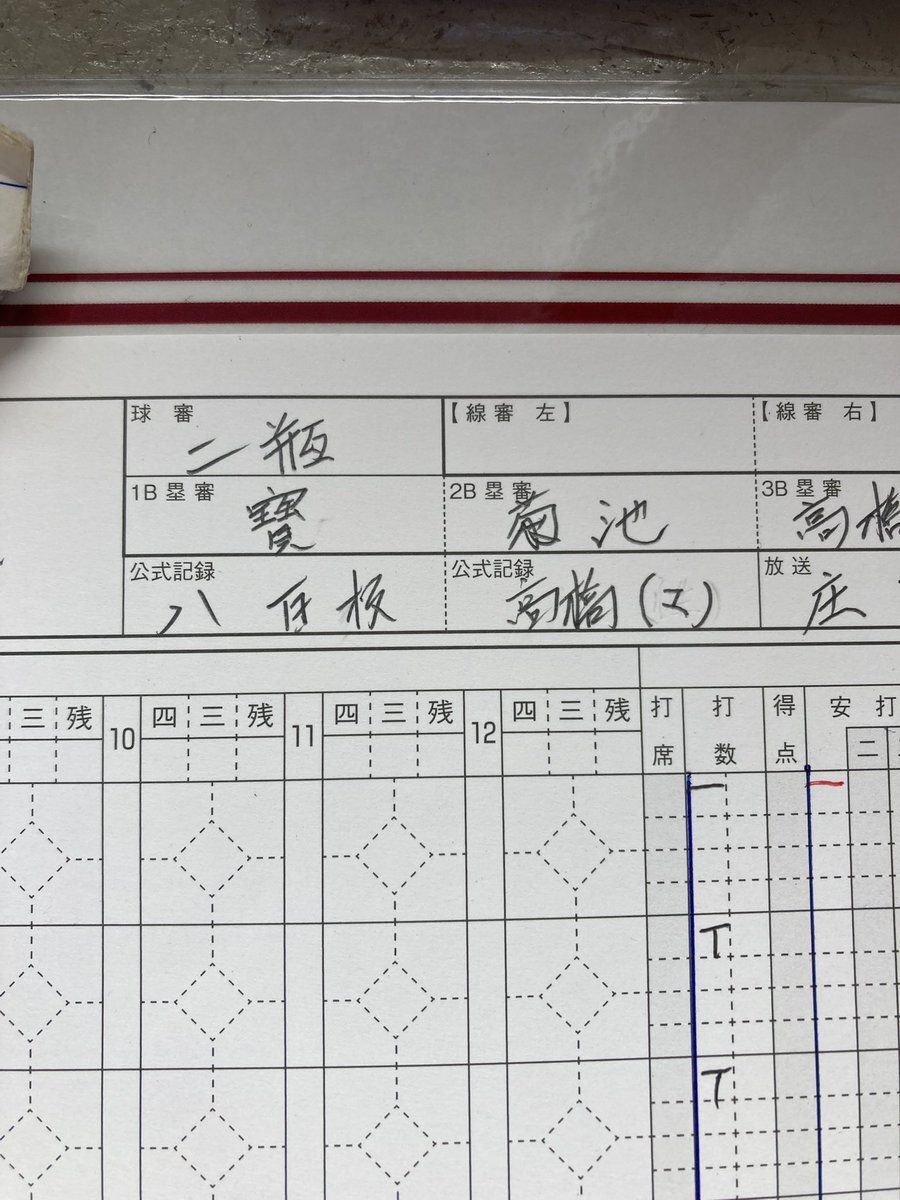 球審 【線審 左】 【線審 右】
二瓶
1B 塁審 2B 塁審 3B 塁審
寳 菊池 高橋
公式記録 公式記録 放送
八百板 高橋(エ) 庄
三 残 10 四 三 残 11 四 三 残 12 四 三 残 打席 打数 得点 安打
二
T
T